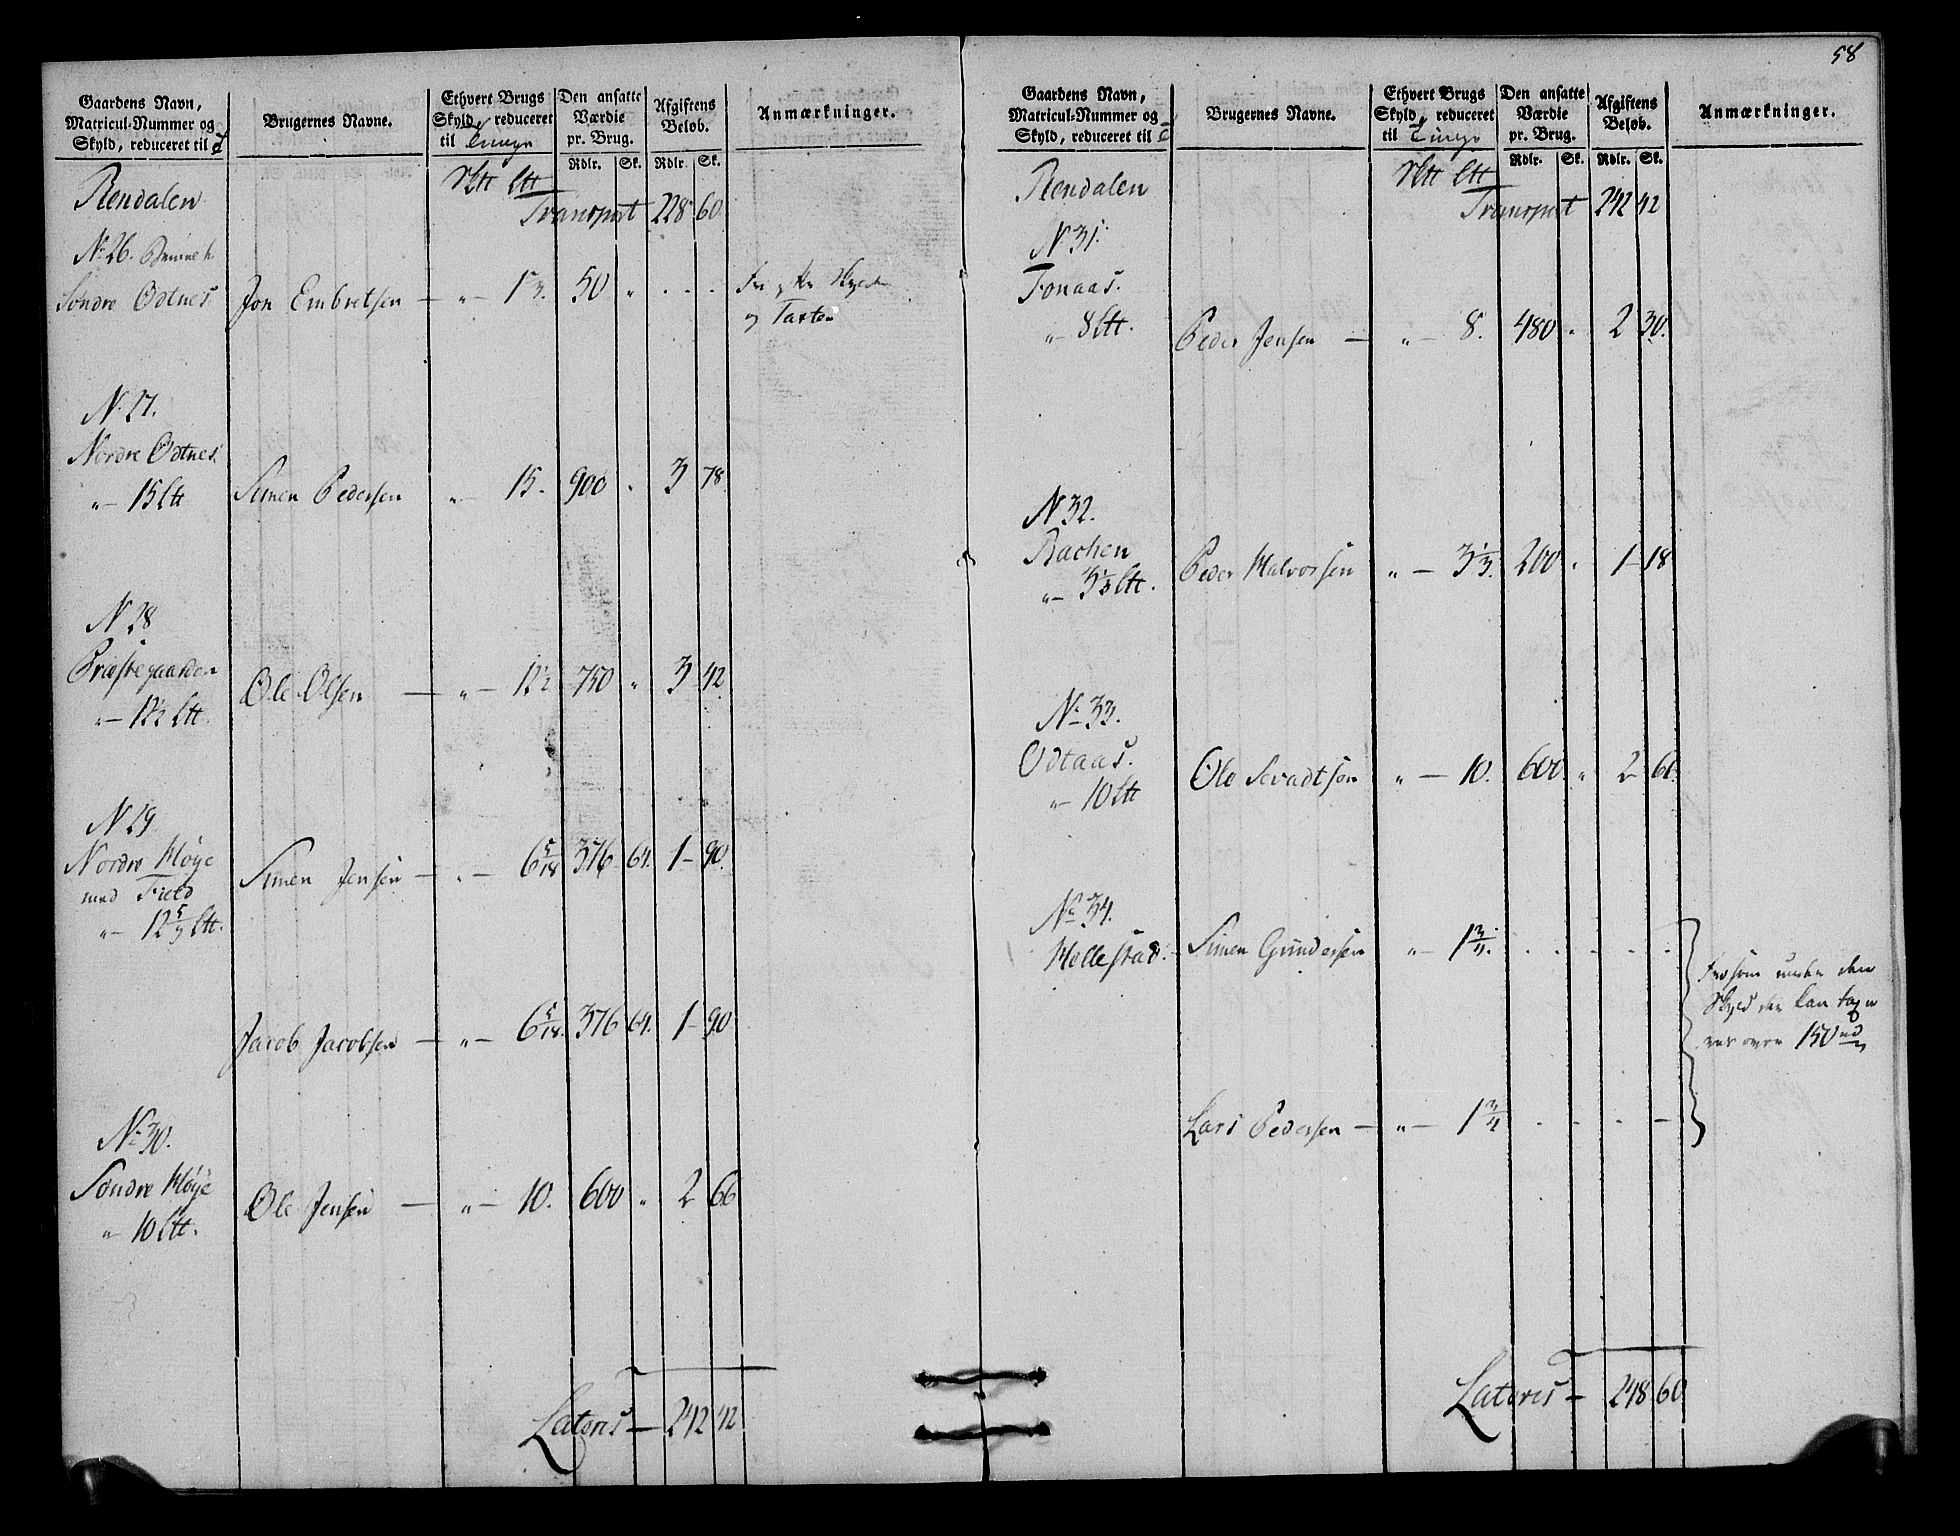 58
Gaardens Navn,
Matricul-Nummer og
Skyld, reduceret til
Brugernes Navne.
Ethvert Brugs
Skyld, reduceret
til Tunge
Den ansatte
Værdie
pr. Brug.
Rdlr. Sk.
Afgiftens
Beløb.
Rdlr. Sk.
Anmærkninger.
Rendalen
Transport 228 60
No 26.
Søndre Odtnes Jon Embretsen — „ — 1 50 „ . . .
og
N. 27.
Nordre Odtnes
„ — 15 Ltt Simen Pedersen „ — 15. 900 „ 3 78.
N 28
Præstegaarden
„ — 12½ Ltt. Ole Olsen — „ — 12½ 750 „ 3 42
N 29.
Nordre Høye
med Field
„ — 12 5/9 Ltt.
Simen Jensen — „ — 6 5/18 376 64. 1 — 90.
Jacob Jacobsen — „ — 6 5/18. 376 64. 1 — 90
No 30.
Søndre Høye
„ — 10 Ltt. Ole Jensen — „ — 10. 600 „ 2 66
Lateris — 242 42
Gaardens Navn,
Matricul-Nummer og
Skyld, reduceret til
Brugernes Navne.
Ethvert Brugs
Skyld, reduceret
til Tunge
Den ansatte
Værdie
pr. Brug.
Rdlr. Sk.
Afgiftens
Beløb.
Rdlr. Sk.
Anmærkninger.
Rendalen
Transport 242 42
N. 31.
Fonaas.
„ — 8 Ltt. Peder Jensen — „ — 8. 480 „ 2 30.
N 32.
Bachen
„ — 3 1/3 Ltt. Peder Halvorsen „ — 3 1/3. 200 „ 1 — 18
No 33.
Odtaas.
„ — 10 Ltt Ole Sevadtsen „ — 10. 600 „ 2 66.
No 34.
Hollestad. — Simen Gundersen „ — 1 3/4. . . . . .
den
kan
over 150
Lars Pedersen — „ — 1 3/4 . . . —
Lateris — 248 60